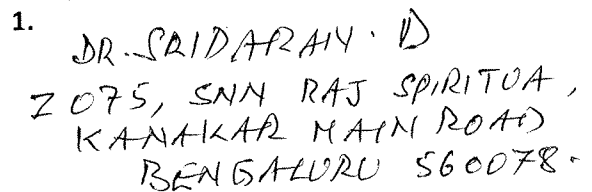 1.
DR. SRIDARAN. D
Z 075, SNN RAJ SPIRITUA,
KANAKAR MAIN ROAD
BENGALURU 560078.